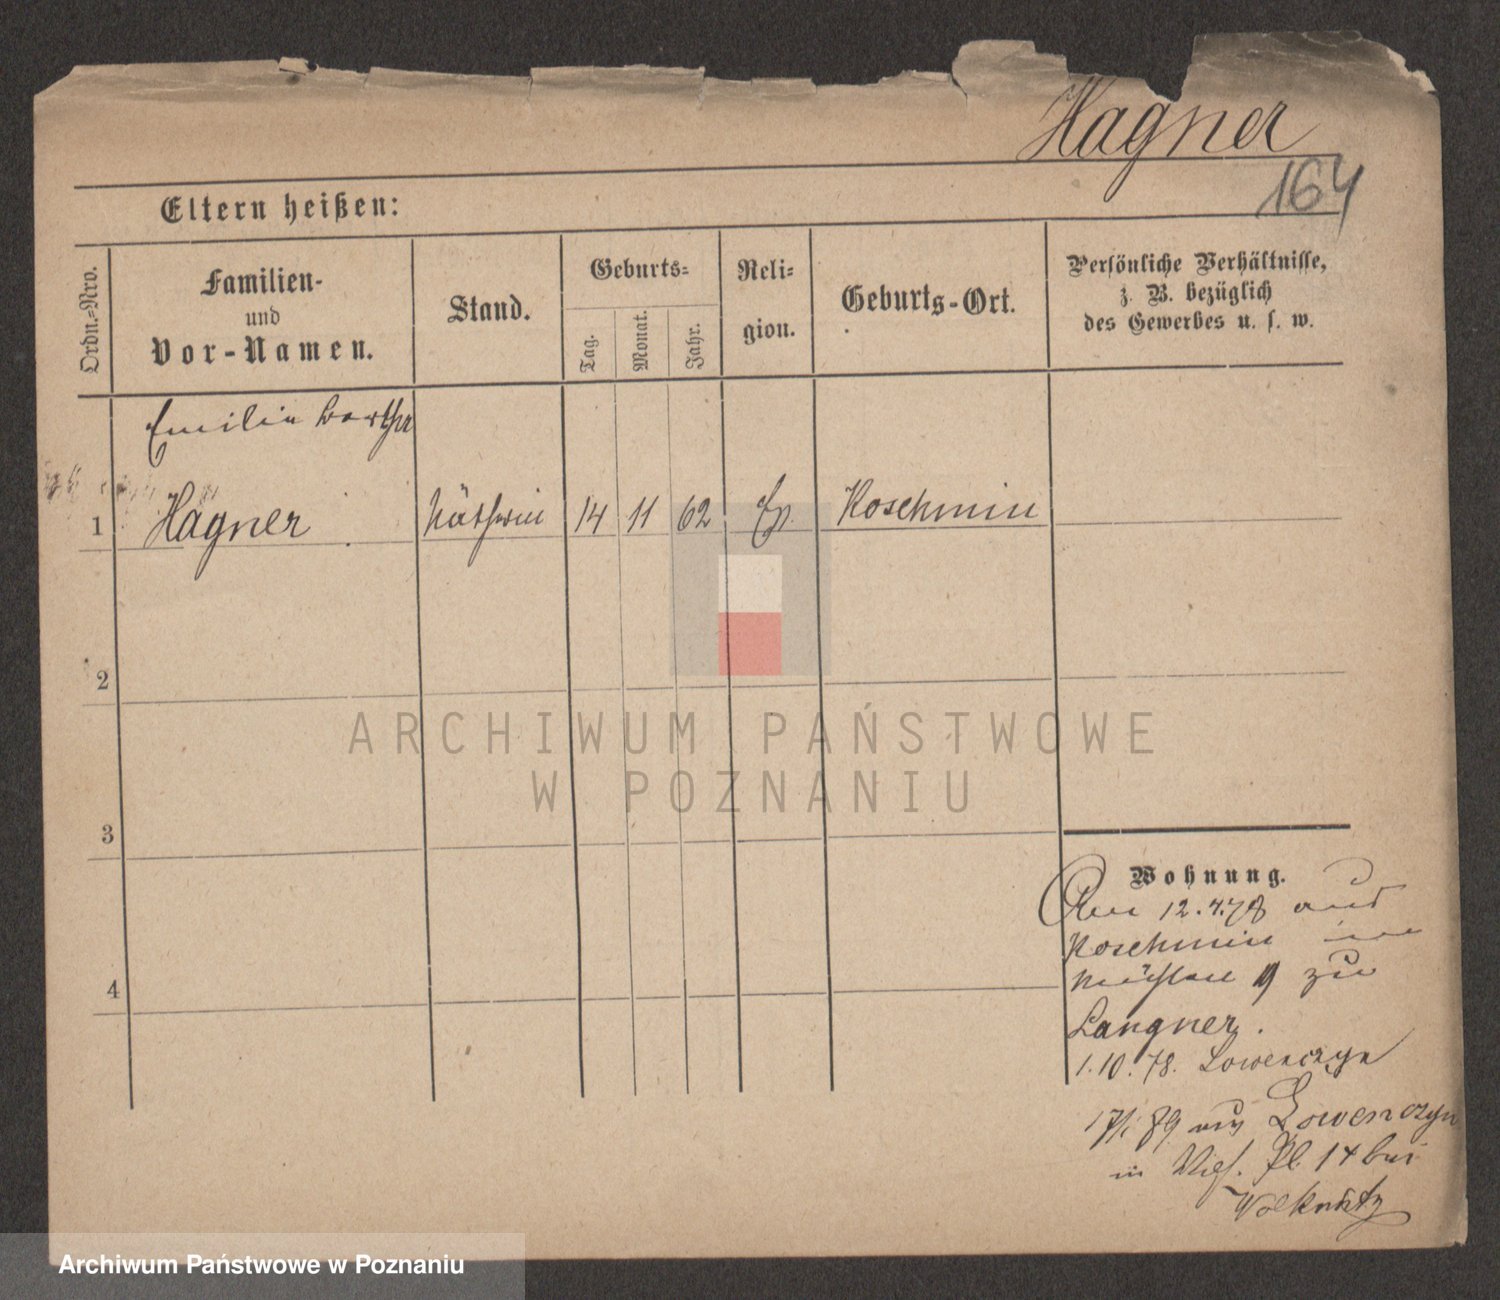 Hagner
164
Eltern heißen:
Ordn.-Nro.
Familien-
und
Vor-Namen.
Stand.
Geburts-
Tag.
Monat.
Jahr.
Reli-
gion.
Geburts-Ort.
Persönliche Verhältnisse,
z. B. bezüglich
des Gewerbes u. s. w.
Emilie Bertha
1 Hagner Näherin 14 11 62 Ev. Koschmin
2
3
4
ARCHIWUM PAŃSTWOWE
W POZNANIU
Wohnung.
Am 12.4.78 aus
Koschmin
9 zu
Langner.
1.10.78. Lowenczyn
17/1 89 aus Lowenczyn
in Pl. 14 bei
Archiwum Państwowe w Poznaniu